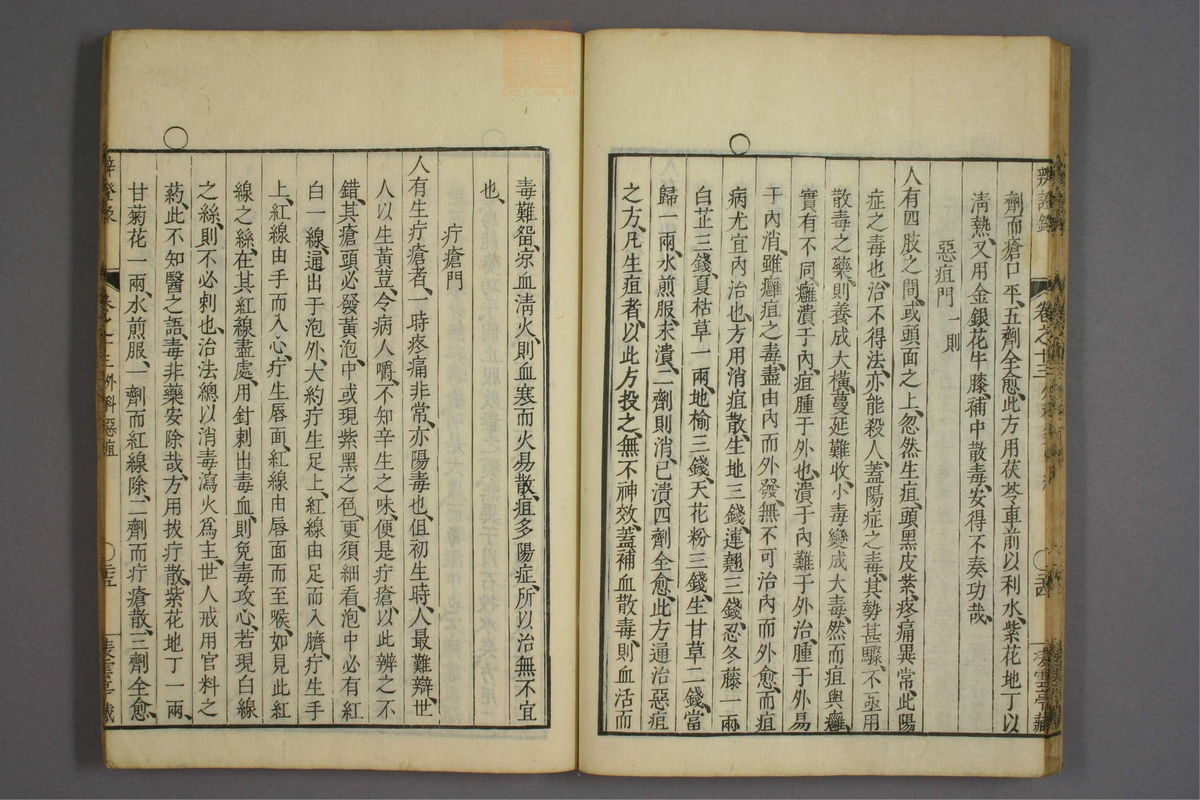 劑而瘡口平、五劑全愈、此方用茯苓車前以利水、紫花地丁以
淸熱、又用金銀花牛膝、補中散毒、安得不奏功哉、
惡疽門一則
人有四肢之間、或頭面之上、忽然生疽、頭黑皮紫、疼痛異常、此陽
症之毒也、治不得法、亦能殺人、蓋陽症之毒、其勢甚驟、不亟用
散毒之藥、則養成大橫、蔓延難收、小毒變成大毒、然而疽與癰、
實有不同、癰潰于內、疽腫于外也、潰于內難于外治、腫于外易
于內消、雖癰疽之毒、盡由內而外發、無不可治內而外愈、而疽
病尤宜內治也、方用消疽散、生地三錢、連翹三錢、忍冬藤一兩
白芷三錢、夏枯草一兩、地榆三錢、天花粉三錢、生甘草二錢、當
歸一兩、水煎服、未潰、二劑則消、已潰四劑全愈、此方通治惡疽
之方、凡生疽者、以此方投之、無不神效、蓋補血散毒、則血活而
毒難留、凉血淸火、則血寒而火易散、疽多陽症、所以治無不宜
也、
疔瘡門
人有生疔瘡者、一時疼痛非常、亦陽毒也、但初生時、人最難辯、世
人以生黃荳、令病人嚼、不知辛生之味、便是疔瘡、以此辨之不
錯、其瘡頭必發黃泡、中或現紫黑之色、更須細看、泡中必有紅
白一線、通出于泡外、大約疔生足上、紅線由足而入臍、疔生手
上、紅線由手而入心、疔生唇面、紅線由唇面而至喉、如見此紅
線之絲、在其紅線盡處、用針刺出毒血、則免毒攻心、若現白線
之絲、則不必刺也、治法總以消毒瀉火爲主、世人戒用官料之
葯、此不知醫之語、毒非藥安除哉、方用拔疔散、紫花地丁一兩、
甘菊花一兩水煎服、一劑而紅線除、二劑而疔瘡散、三劑全愈、
辨證錄
卷之十三外科惡疽